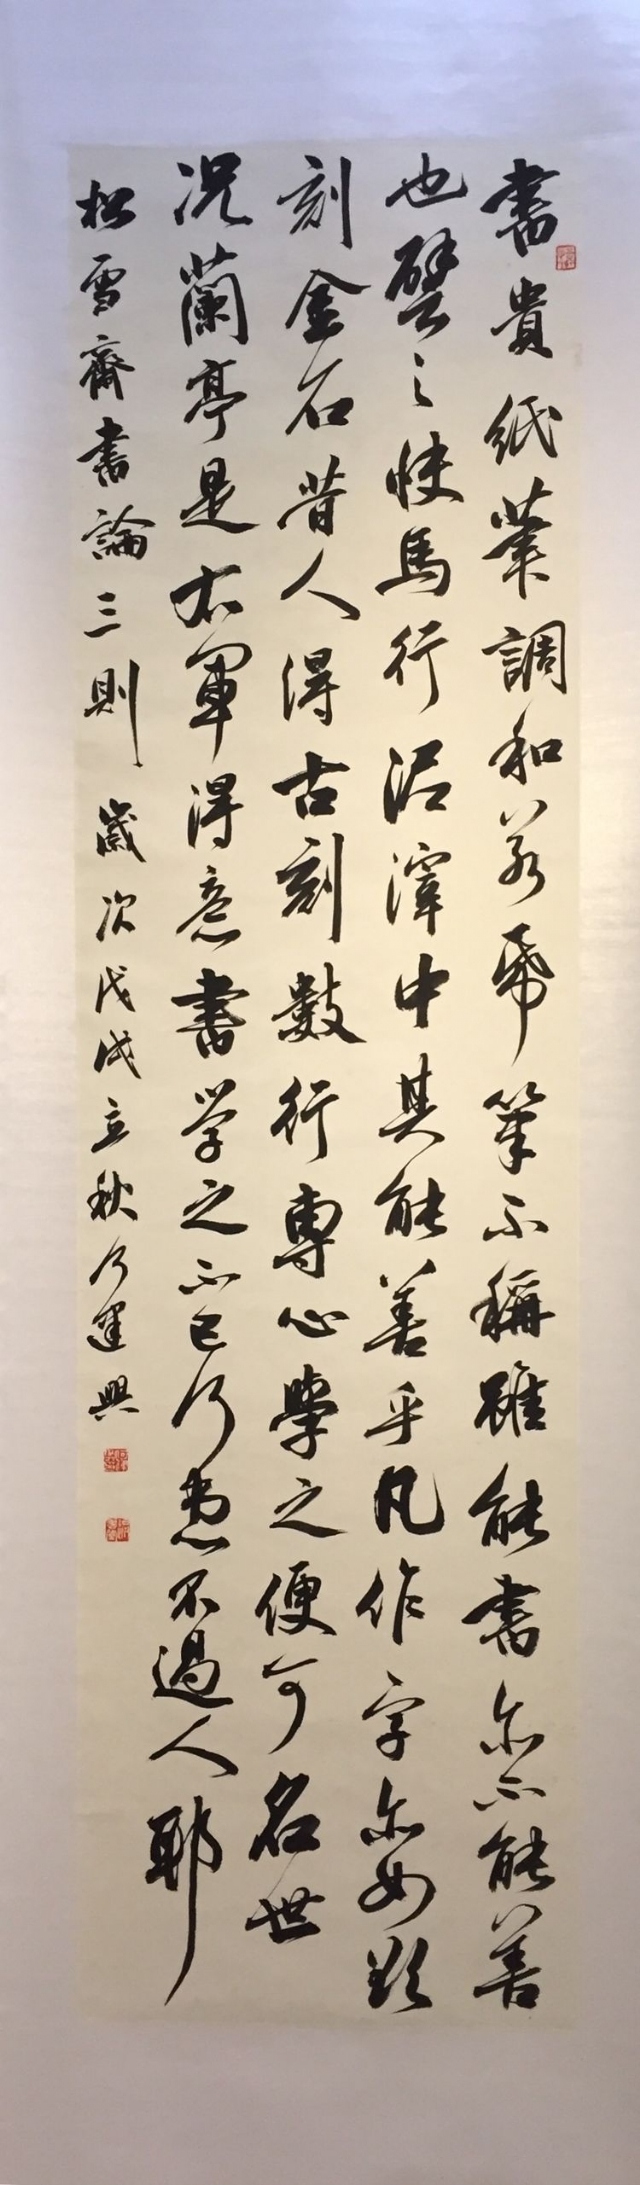 書貴紙筆調和若帋筆不稱雖能書亦不能善
也譬之快馬行泥滓中其能善乎凡作字亦如欵
刻金石昔人得古刻數行專心學之便可名世
况蘭亭是右軍得意書学之不已何患不過人耶
松雪齋書論三則 歲次戊戌立秋何建興